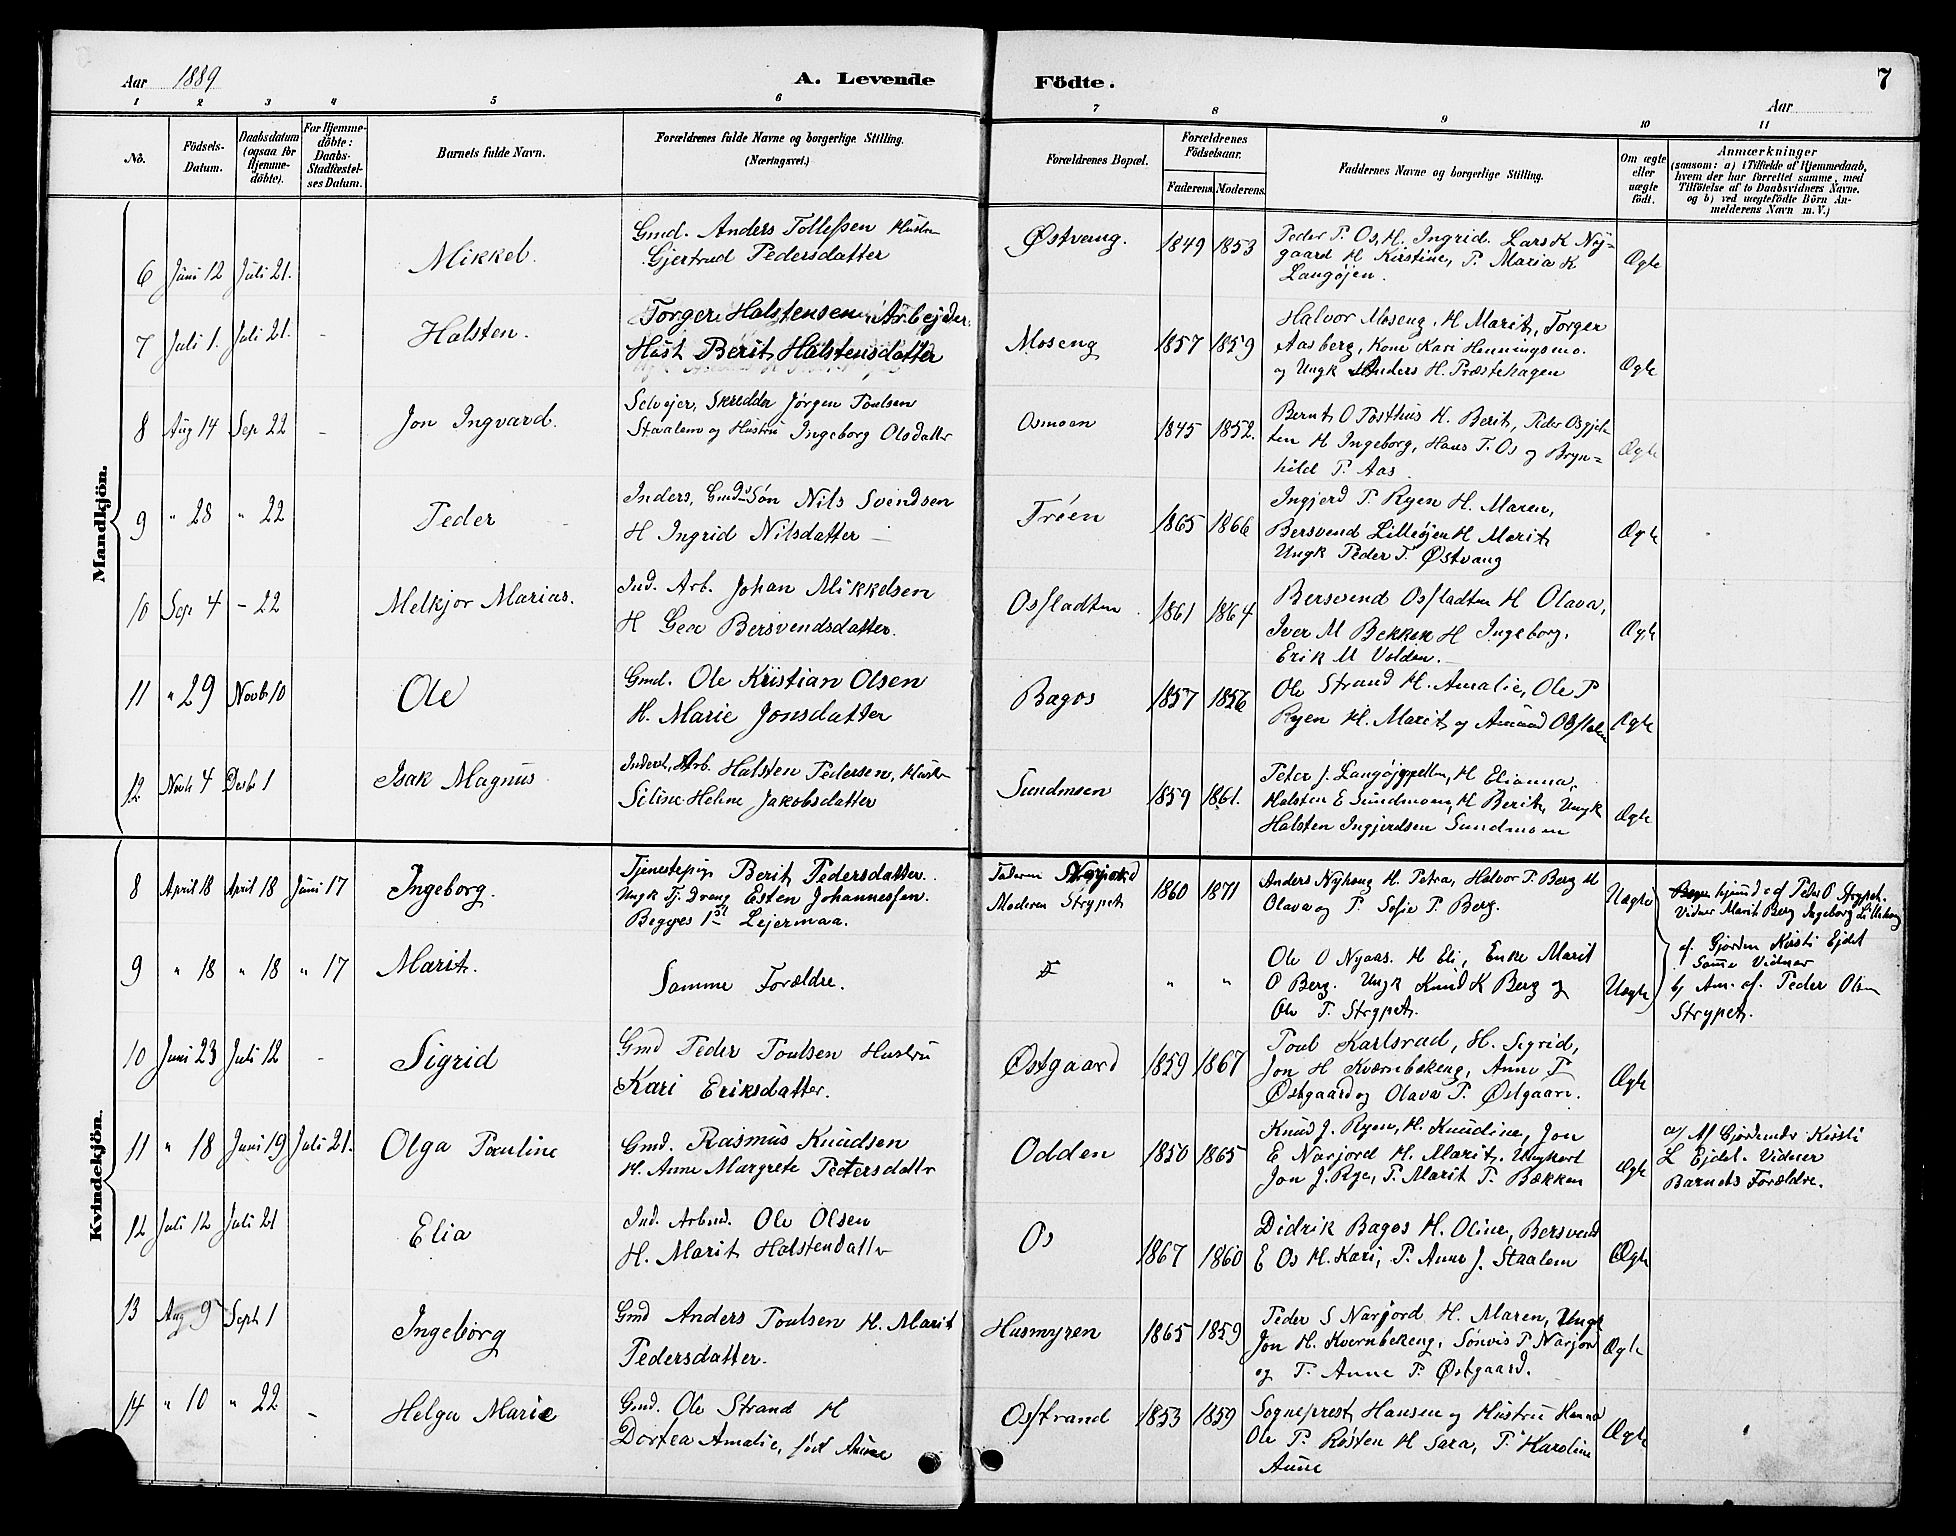 Aar 1889
A. Levende
Födte.
7
Aar
1 2 3 4 5 6 7 8 9 10 11
No. Födsels-Datum. Daabsdatum (ogsaa for Hjemmedöbte). For Hjemmedöbte: Daabs-Stadfæstelses Datum. Barnets fulde Navn. Forældrenes fulde Navne og borgerlige Stilling. (Næringsvei.) Forældrenes Bopæl. Forældrenes Födselsaar. Faderens. Moderens. Faddernes Navne og borgerlige Stilling. Om ægte eller uægte födt. Anmærkninger
(saasom: a) i Tilfælde af Hjemmedaab,
hvem der har forrettet samme, med
Tilföielse af to Daabsvidners Navne.
og b) ved uægtefödte Börn An-
melderens Navn m. V.)
Mandkjön.
6 Juni 12 Juli 21. Mikkel. Gmd. Anders Tollefsen Hustru
Gjertrud Pedersdatter
Østvang. 1849 1853 Peder P. Os, H. Ingrid. Lars K Ny-
gaard H Kirstine, P. Maria K
Langøjen. Ægte
7 Juli 1. Juli 21. - Halsten. Torger Halstensen Arbejder.
Hust Berit Halstensdatter
Moseng 1857 1859 Halvor Moseng, H Marit, Torger
Aasberg, Kone Kari Henningsmo.
og Ungk Anders H. Præstehagen Ægte
8 Aug 14 Sep 22 - Jon Ingvard. Selvejer, Skredder Jørgen Poulsen
Staalem og Hustru Ingeborg Olsdatter
Osmoen 1845 1852. Bernt O Posthus H. Berit, Peder Osgjel-
ten H Ingeborg, Hans T. Os og Bryn=
hild P. Aas Ægte
9 " 28 " 22 Peder Inders, Gmds Søn Nils Svendsen
H Ingrid Nilsdatter -
Trøen 1865 1866 Ingjerd P. Ryen H. Maren,
Bersvend Lilleøjen H Marit
Ungk Peder T. Østvang Ægte
10 Sep 4 - 22 Melkjor Marias. Ind. Arb. Johan Mikkelsen
H Gea Bersvendsdatter.
Osfladten 1861 1864 Bersvend Osfladten H Olava,
Iver M Bekken H Ingeborg,
Erik M Volden. Ægte
11 " 29 Novb 10 Ole Gmd. Ole Kristian Olsen
H. Marie Jonsdatter
Bagos 1857 1856 Ole Strand H. Amalie, Ole P
Ryen H. Marit og Ægte
12 Novb 4 Desb 1 Isak Magnus Inderst, Arb. Halsten Pedersen, Hustru
Seline Helene Jakobsdatter
Sundmoen 1859 1861. Peter J. H Elianna,
Halsten E Sundmoen, H Berit, Ungk
Halsten Ingjerdsen Sundmoen Ægte
Kvindekjön.
8 April 18 April 18 Juni 17 Ingeborg. Tjenestepige Berit Pedersdatter.
Ungk Tj. dreng Esten Johannessen.
Begges 1st Lejermaa.
Faderen Narjord
Moderen Strypet 1860 1871 Anders Nyhaug H. Petra, Halvor P. Berg H
Olava og P. Sofie P. Berg. Uægte hjemd. af Peder O Strypet.
Vidner Marit Berg Ingeborg Lillehaug
9 " 18 " 18 " 17 Marit. Samme Forældre.
" " Ole O Nyaas. H Eli, Enke Marit
O Berg. Ungk Knud K Berg og
Ole P. Strypet. Uægte af Gjordem Kirsti Ejdet
Samme Vidner
b) Am. af. Peder Olsen
Strypet.
10 Juni 23 Juli 12 - Sigrid Gmd Peder Poulsen Hustru
Kari Eriksdatter.
Østgaard 1859 1867 Poul Karlsrud, H. Sigrid,
Jon H Kværnbekeng, Anne P
Østgaard og Olava P. Østgaard. Ægte
11 " 18 Juni 19 Juli 21. Olga Pauline Gmd. Rasmus Knudsen
H. Anne Margrete Petersdatter
Odden 1850 1865 Knud J. Ryen, H. Knudine, Jon
E Narjord H. Marit, Ungkarl
Jon J. Rye, P. Marit P. Bækken Ægte a/ Af Gjordemdr Kirsti
L Ejdet. Vidner
Barnets Forældre.
12 Juli 12 Juli 21 Elia Ind. Arbmd. Ole Olsen
H. Marit Halstendatter
Os 1867 1860 Didrik Bagos H. Oline, Bersvend
E Os H. Kari, P. Anne J. Staalem Ægte
13 Aug 9 Septb 1 Ingeborg Gmd Anders Poulsen H. Marit
Pedersdatter.
Husmyren 1865 1859 Peder S Narjord H. Maren, Ungk
Jon H. Kvernbekeng, Sønvis P. Narjord
og P. Anne P. Østgaard. Ægte
14 " 10 " 22 - Helga Marie Gmd. Ole Strand H
Dortea Amalie, født Aune
Osstrand 1853 1859 Sogneprest Hansen og Hustru Hanna
Ole P. Røsten H Sara, P. Karoline
Aune Ægte